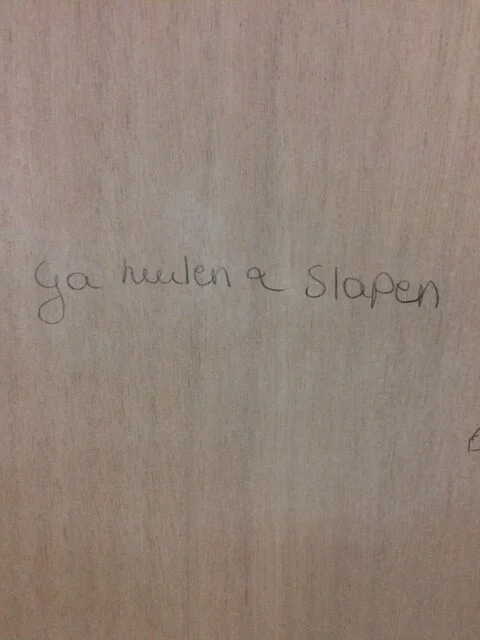 Ga huilen a slapen